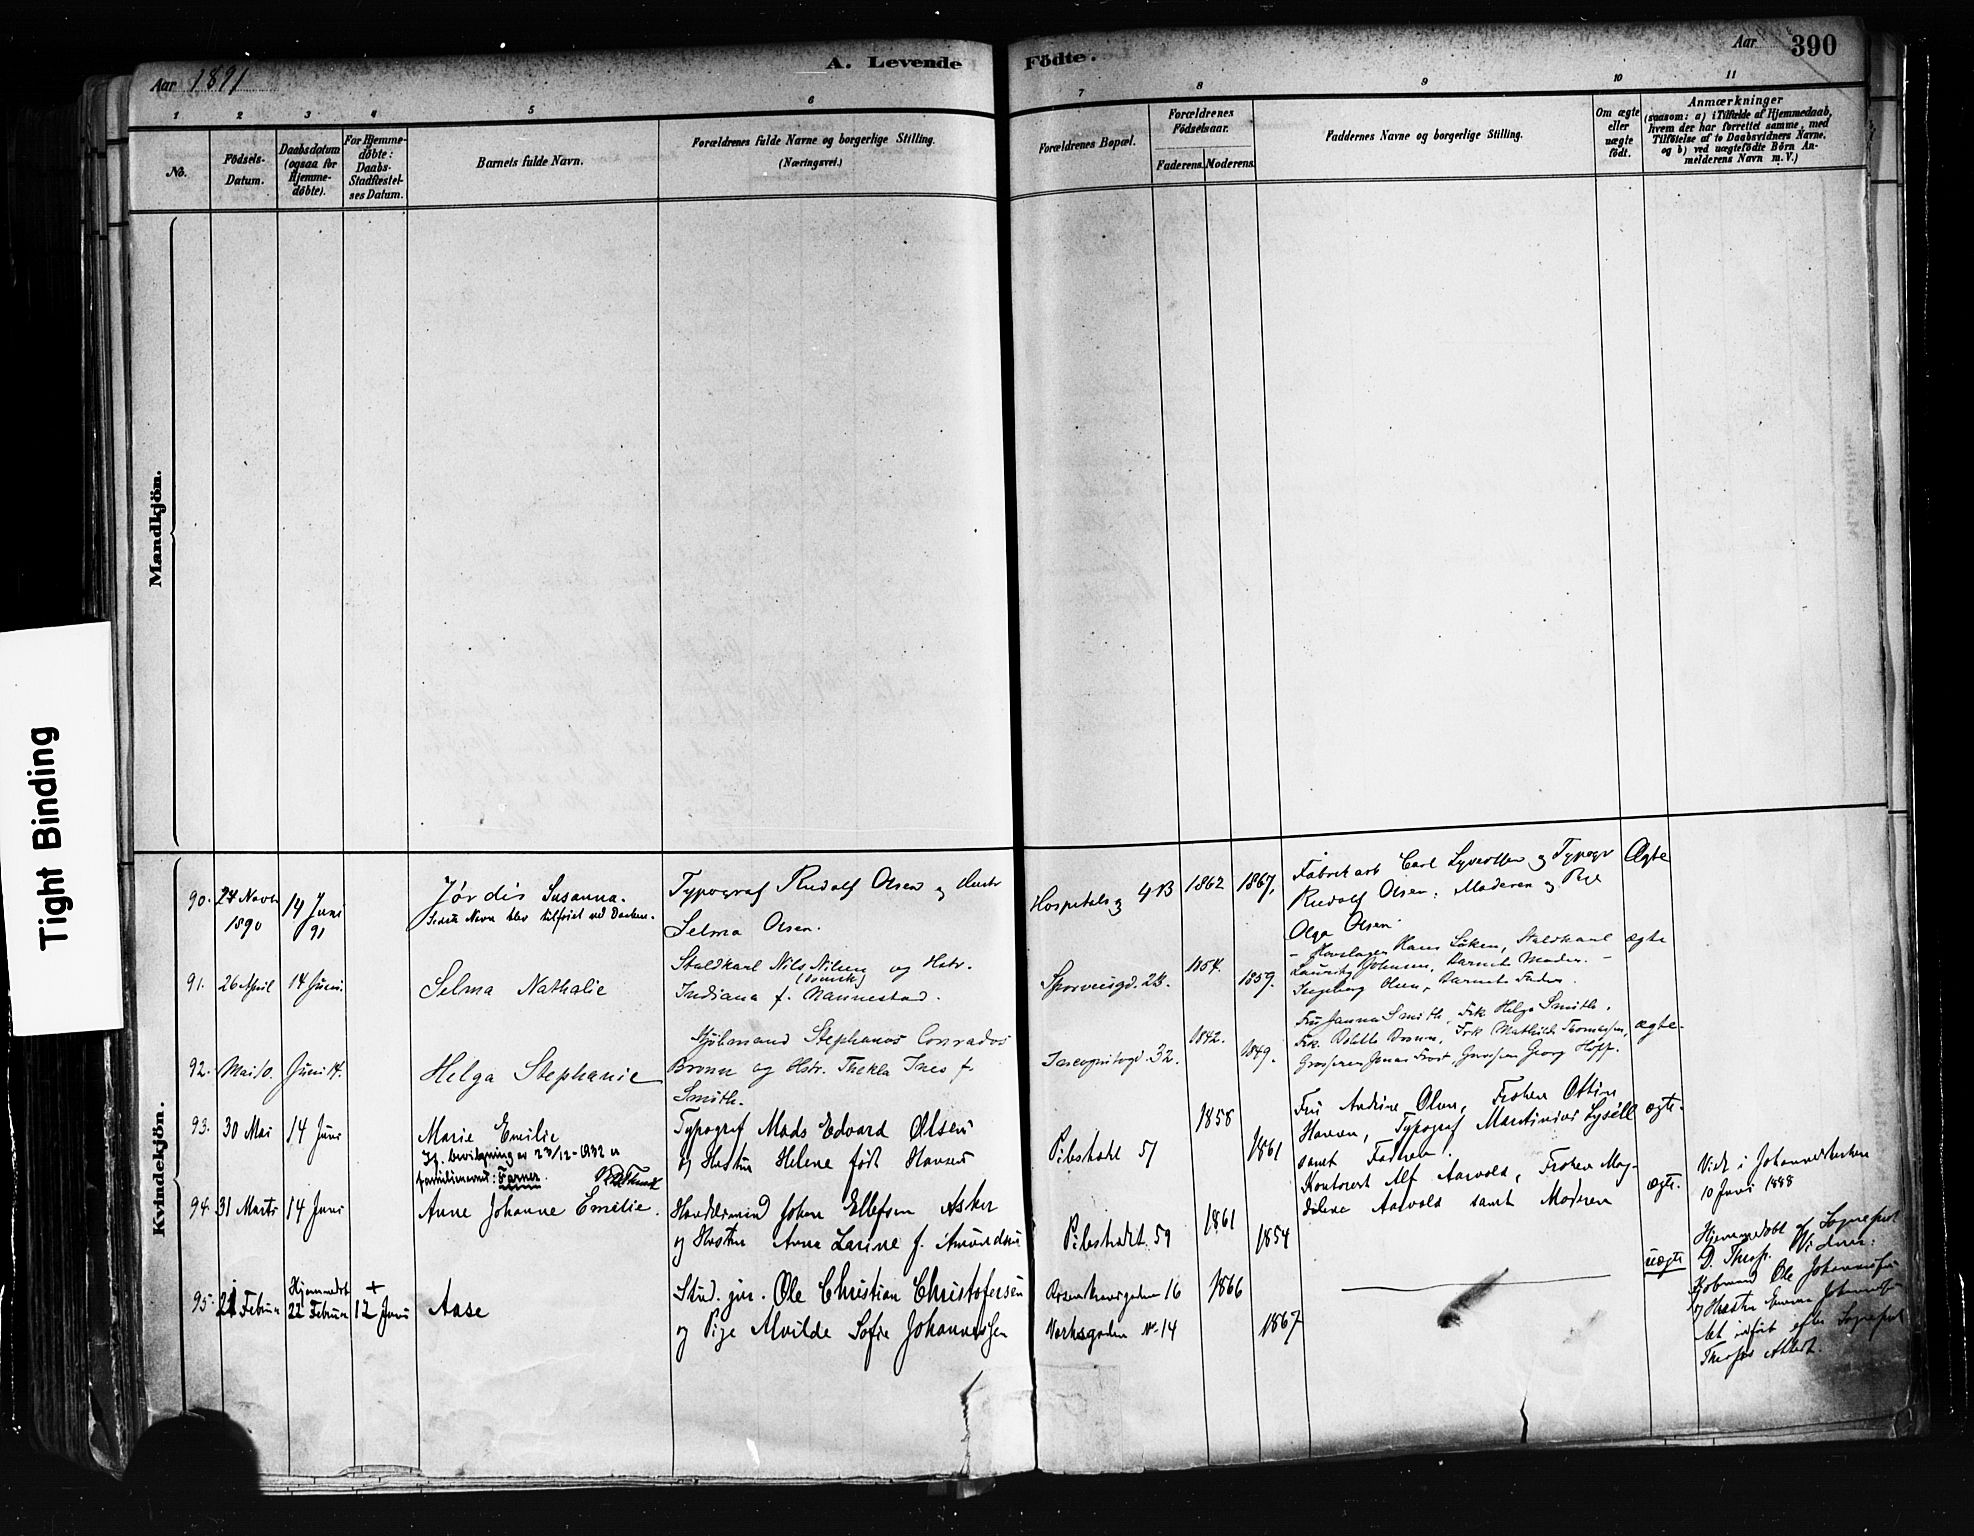 Aar 1891
A. Levende Födte.
Aar
390
1 2 3 4 5 6 7 8 9 10 11
No.
Födsels-
Datum.
Daabsdatum
(ogsaa for
Hjemme-
döbte).
For Hjemme-
döbte:
Daabs-
Stadfæstel-
ses Datum.
Barnets fulde Navn.
Forældrenes fulde Navne og borgerlige Stilling.
(Næringsvei.)
Forældrenes Bopæl.
Forældrenes
Födselsaar.
Faderens. Moderens.
Faddernes Navne og borgerlige Stilling.
Om ægte
eller
uægte
födt.
Anmærkninger
(saasom: a) i Tilfælde af Hjemmedaab,
hvem der har forrettet samme, med
Tilföielse af to Daabsvidners Navne,
og b) ved uægtefödte Börn An-
melderens Navn m. V.)
Mandkjön.
Tight Binding
Kvindekjön.
90. 24 Novbr
1890
14 Juni
91
Jørdis Susanna.
Navn blev tilføiet ved Daaben.
Typograf Rudolf Olsen og Hustr
Selma Olsen.
Hospitalsg 4B
1862 1867,
Fabrikarb Carl og Typogr
Rudolf Olsen; Moderen og Pige
Olga Olsen
Ægte
91. 26 April 14 Juni.
Selma Nathalie
Staldkarl Nils Nilsen og Hstr.
(svensk)
Indiana f. Nannestad.
Sporveisgd. 2B.
1854. 1859.
Hans Løken, Staldkarl
Lauritz Johnsen, Barnets Moder. –
Ingeborg Olsen, Barnets Fader.
ægte
92. Mai 10. Juni 14.
Helga Stephanie
Kjøbmand Stephanos Conrados
Brun og Hstr. Thekla Ines f.
Smith.
32.
1842. 1849.
Fru Janna Smith, Frk Helga Smith,
Frk. Frk Mathilde Thomassen,
Grosserer Jonas Grosserer Georg Hoff.
ægte.
93. 30 Mai 14 Juni
Marie Emilie
Ifl. bevilgning av 23/12-1932 er
familienavnet: Farner.
Typograf Mads Edvard Olsen
og Hustru Helene født Hansen
Pilestrædet 57
1858 1861
Fru Andrine Olsen, Frøken Ottine
Hansen, Typograf Martinius Lysell
samt Faderen.
ægte.
94. 31 Marts 14 Juni
Anne Johanne Emilie.
Handelsmand Johan Ellefsen Asker
og Hustru Anna Larine f. Amundsen
Pilestrædet 59
1861 1854
Kontorist Alf Aasvold, Frøken Mag-
dalene Aasvold samt Moderen
ægte.
Viet i Johanneskirken
10 Juni 1888
95. 21 Februar
Hjemmedøbt
22 Februar
+
12 Juni
Aase
Stud. jur. Ole Christian Christofersen
og Pige Alvilde Sofie Johannessen
Rosenkransgaden 16
Verksgaden No 14
1866 1867
uægte
Hjemmedøbt af Sognepræst
D. Thrap. Vidner:
Kjøbmand Ole Johannessen
og Hustru Emma Johannessen
indført efter Sognepræst
Thraps Attest.